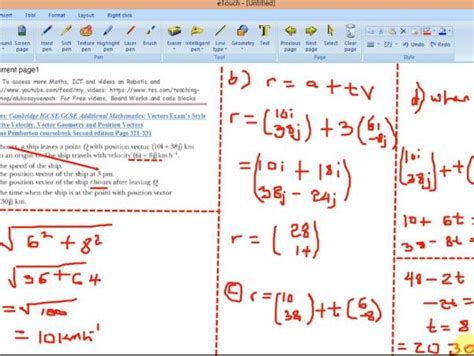 eTouch - [Untitled]
ment Format Layout Right click
Screen pen Hard pen Soft pen Texture pen Highlighter pen Laser pen Brush Eraser Intelligent pen Line Vector Geometry Text Color
page1
To access more Maths, ICT and videos on Robotic and
//www.youtube.com/feed/my_videos; https://www.tes.com/teaching-
For Free videos, Board Works and code blocks
Cambridge IGCSE/GCSE Additional Mathematics Vectors Exam's Style
tive Velocity, Vector Geometry and Position Vectors
Pemberton coursebook Second edition Page 321-331
a ship leaves a point Q with position vector (10i + 38j) km
an origin O. The ship travels with velocity (6i – 8j) km h⁻¹.
the speed of the ship.
the position vector of the ship at 3 pm.
the position vector of the ship t hours after leaving Q
the time when the ship is at the point with position vector
30j) km.
√6² + 8²
√36 + 64
= √100
= 10 kmh⁻¹
b) r = a + tv
r = (10i 38j) + 3(6i -8j)
= (10i + 18i
38j - 24j)
r = (28 14)
(c) r = (10 38) + t(6 -8)
d) when
(10i 38j) + t(
10 + 6t =
38 - 8t =
48 - 2t
- 2t =
t = 8
= 20 30